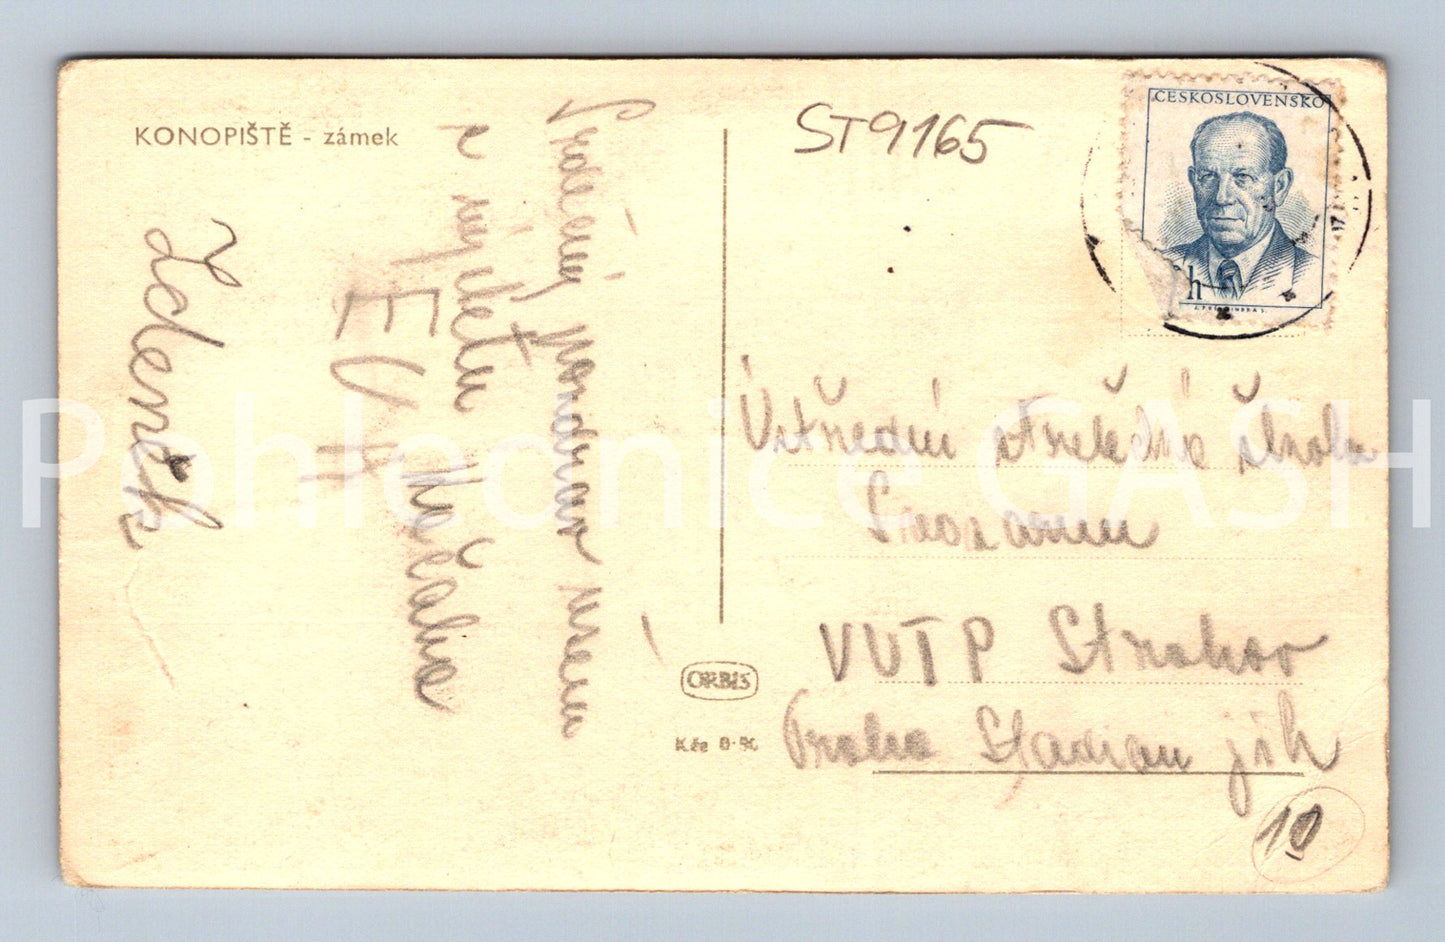 KONOPIŠTĚ - zámek
ST9165
ČESKOSLOVENSKO
h
Srdečný pozdrav všem
z výletu
EVA
Zdeněk
Ústřední střelecká škola
Svazarmu
VUTP Strahov
Praha Stadion jih
ORBIS
Kčs 0·90
10
Pohlednice GASH